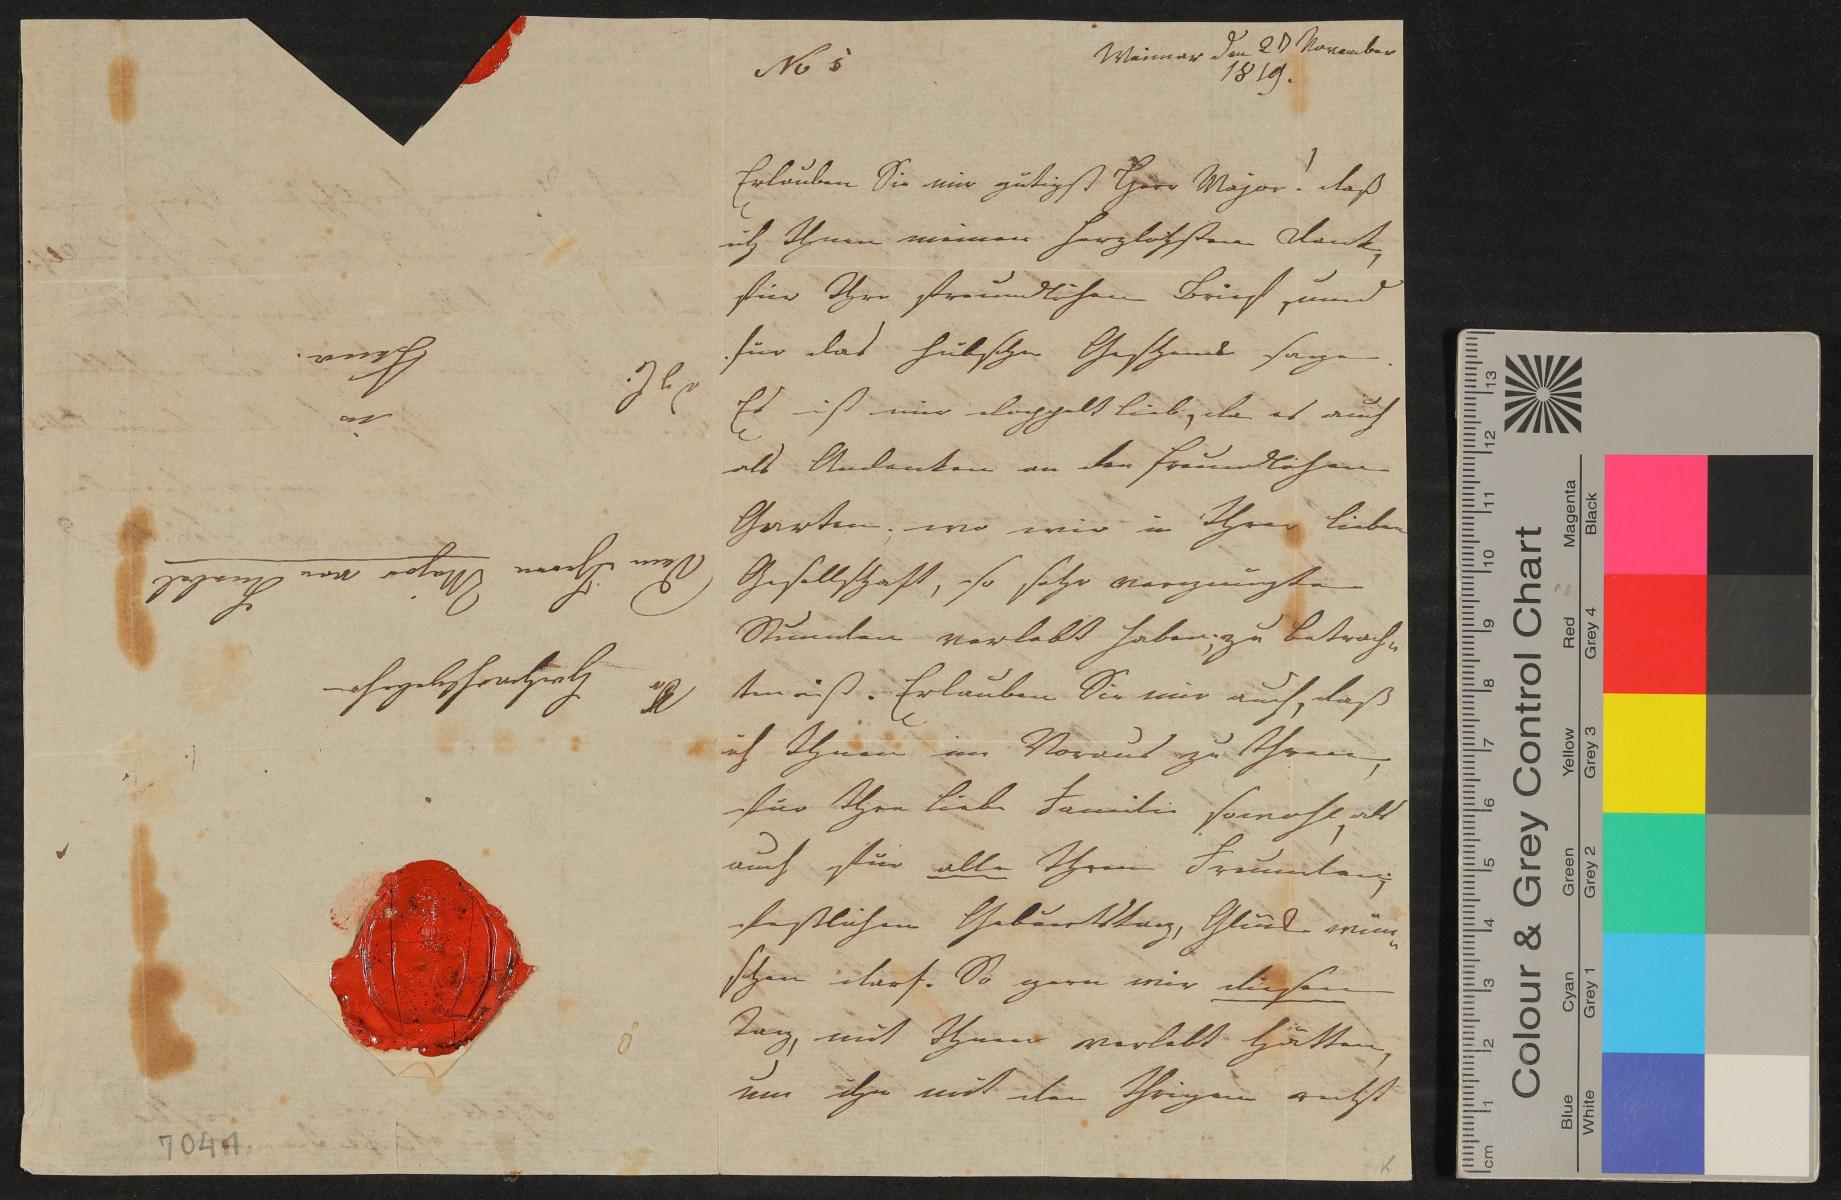 No 5
Weimar den 27 November
1819.
Erlauben Sie mir gütigst Herr Major! daß
ich Ihnen meinen herzlichsten Dank,
für Ihre freundlichen Brief, und
für das hübsche Geschenk sage.
Es ist mir doppelt lieb, da es auch
als Andenken an den freundlichen
Garten, wo wir in Ihrer lieben
Gesellschaft, so sehr vergnügte
Stunden verlebt haben, zu betrach-
ten ist. Erlauben Sie mir auch, daß
ich Ihnen im Voraus zu Ihrem,
für Ihre liebe Familie sowohl, als
auch für alle Ihren Freunden,
festlichen Geburtstag, Glück wün-
schen darf. So gern wir diesen
Tag, mit Ihnen verlebt hätten,
um ihn mit den Ihrigen recht
Sr
Hochwohlgeb
Dem Herrn Major von Knebel
in
Jena.
7041
Colour & Grey Control Chart
Blue Cyan Green Yellow Red Magenta
White Grey 1 Grey 2 Grey 3 Grey 4 Black
cm 1 2 3 4 5 6 7 8 9 10 11 12 13